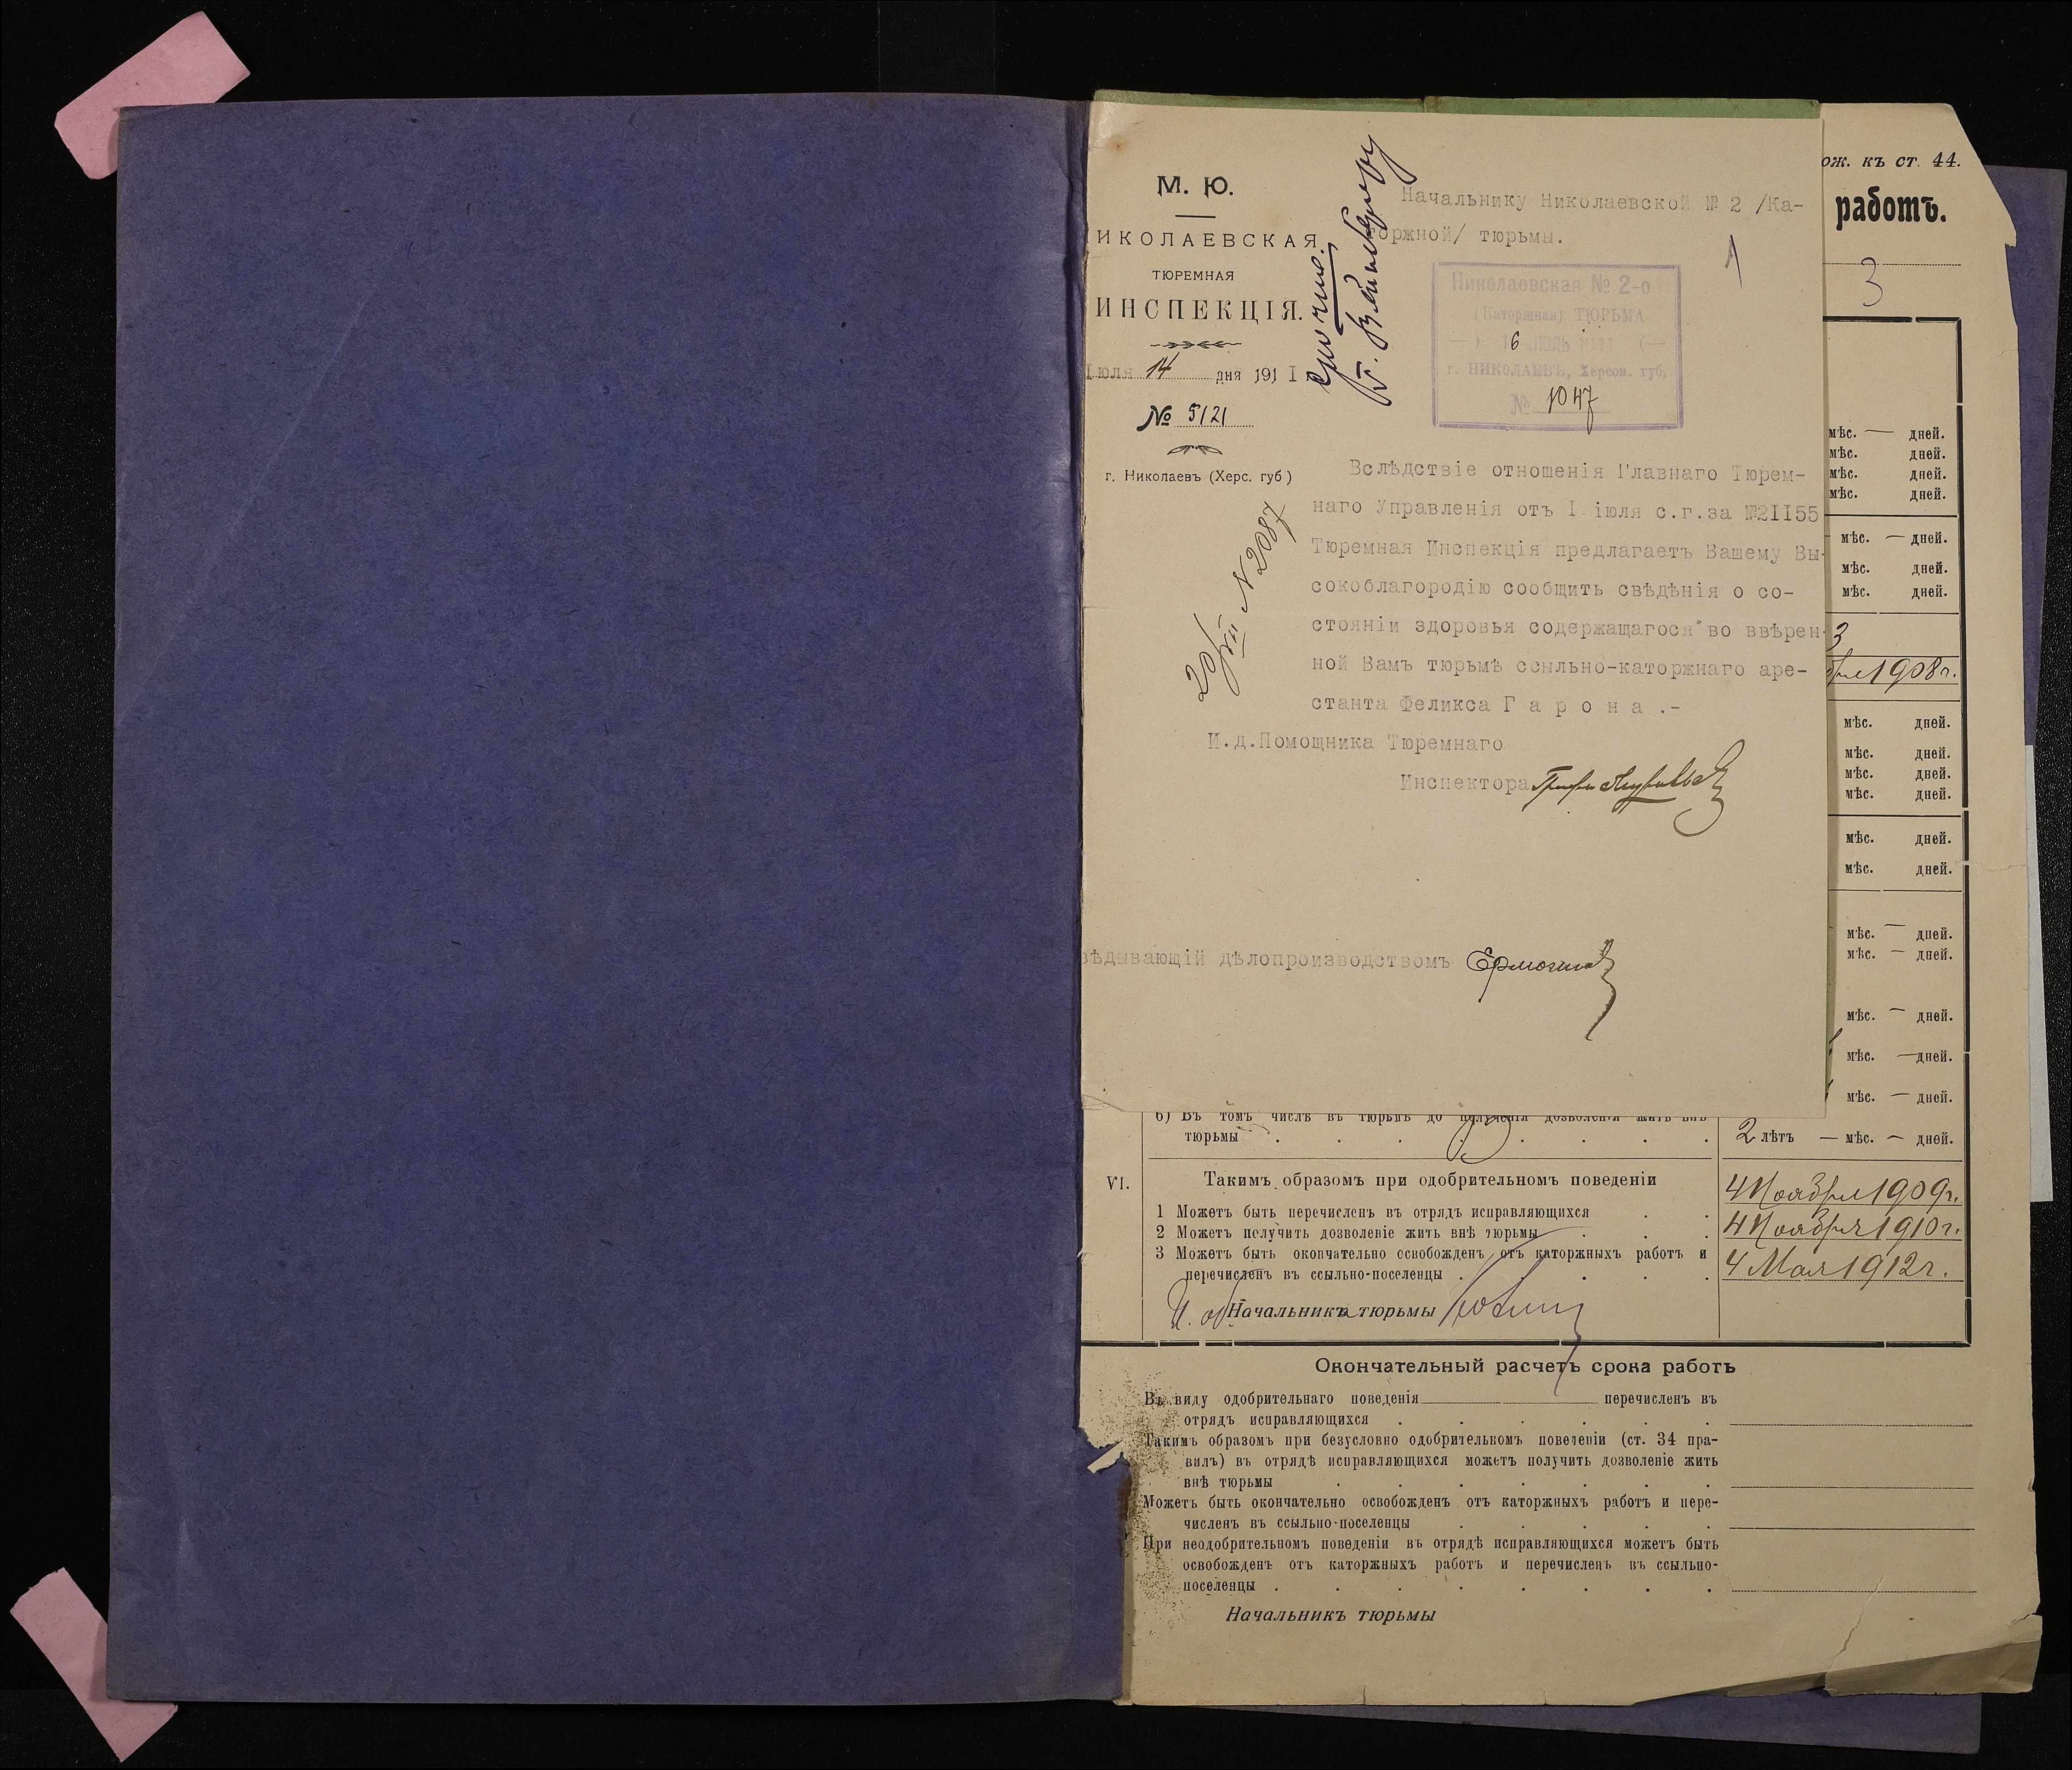 М. Ю.
ИКОЛАЕВСКАЯ
ТЮРЕМНАЯ
ИНСПЕКЦІЯ.
Іюля 14 дня 1911
№ 5121
г. Николаевъ (Херс. губ)
Срочно.
20/VII № 2087
Начальнику Николаевской № 2 /Ка-
торжной/ тюрьмы.
1
Николаевская № 2-о
(Каторжная) ТЮРЬМА
16 ІЮЛЬ 1911
г. НИКОЛАЕВЪ, Херсон. губ,
№ 1047
Вслѣдствіе отношенія Главнаго Тюрем-
наго Управленія отъ I іюля с.г.за №2II55
Тюремная Инспекція предлагаетъ Вашему Вы-
сокоблагородію сообщить свѣдѣнія о со-
стояніи здоровья содержащагося во ввѣрен-
ной Вамъ тюрьмѣ ссыльно-каторжнаго аре-
станта Феликса Г а р о н а .-
И.д.Помощника Тюремнаго
Инспектора
вѣдывающій дѣлопроизводствомъ
ож. къ ст. 44.
работъ.
3
мѣс. — дней.
мѣс. дней.
мѣс. дней.
мѣс. дней.
мѣс. — дней.
мѣс. дней.
мѣс. дней.
3
1908г.
мѣс. дней.
мѣс. дней.
мѣс. дней.
мѣс. дней.
мѣс. дней.
мѣс. дней.
мѣс. — дней.
мѣс. — дней.
мѣс. — дней.
мѣс. — дней.
мѣс. — дней.
б) Въ томъ числѣ въ тюрьмѣ до полученія дозволенія жить внѣ
тюрьмы 2 лѣтъ — мѣс. — дней.
VI. Такимъ образомъ при одобрительномъ поведеніи
1 Можетъ быть перечисленъ въ отрядъ исправляющихся 4 Ноября 1909г.
2 Можетъ получить дозволеніе жить внѣ тюрьмы 4 Ноября 1910г.
3 Можетъ быть окончательно освобожденъ отъ каторжныхъ работъ и
перечисленъ въ ссыльно-поселенцы 4 Мая 1912г.
И. об. Начальника тюрьмы
Окончательный расчетъ срока работъ
Въ виду одобрительнаго поведенія перечисленъ въ
отрядъ исправляющихся
Такимъ образомъ при безусловно одобрительномъ поведеніи (ст. 34 пра-
вилъ) въ отрядѣ исправляющихся можетъ получить дозволеніе жить
внѣ тюрьмы
Можетъ быть окончательно освобожденъ отъ каторжныхъ работъ и пере-
численъ въ ссыльно-поселенцы
При неодобрительномъ поведеніи въ отрядѣ исправляющихся можетъ быть
освобожденъ отъ каторжныхъ работъ и перечисленъ въ ссыльно-
поселенцы
Начальникъ тюрьмы